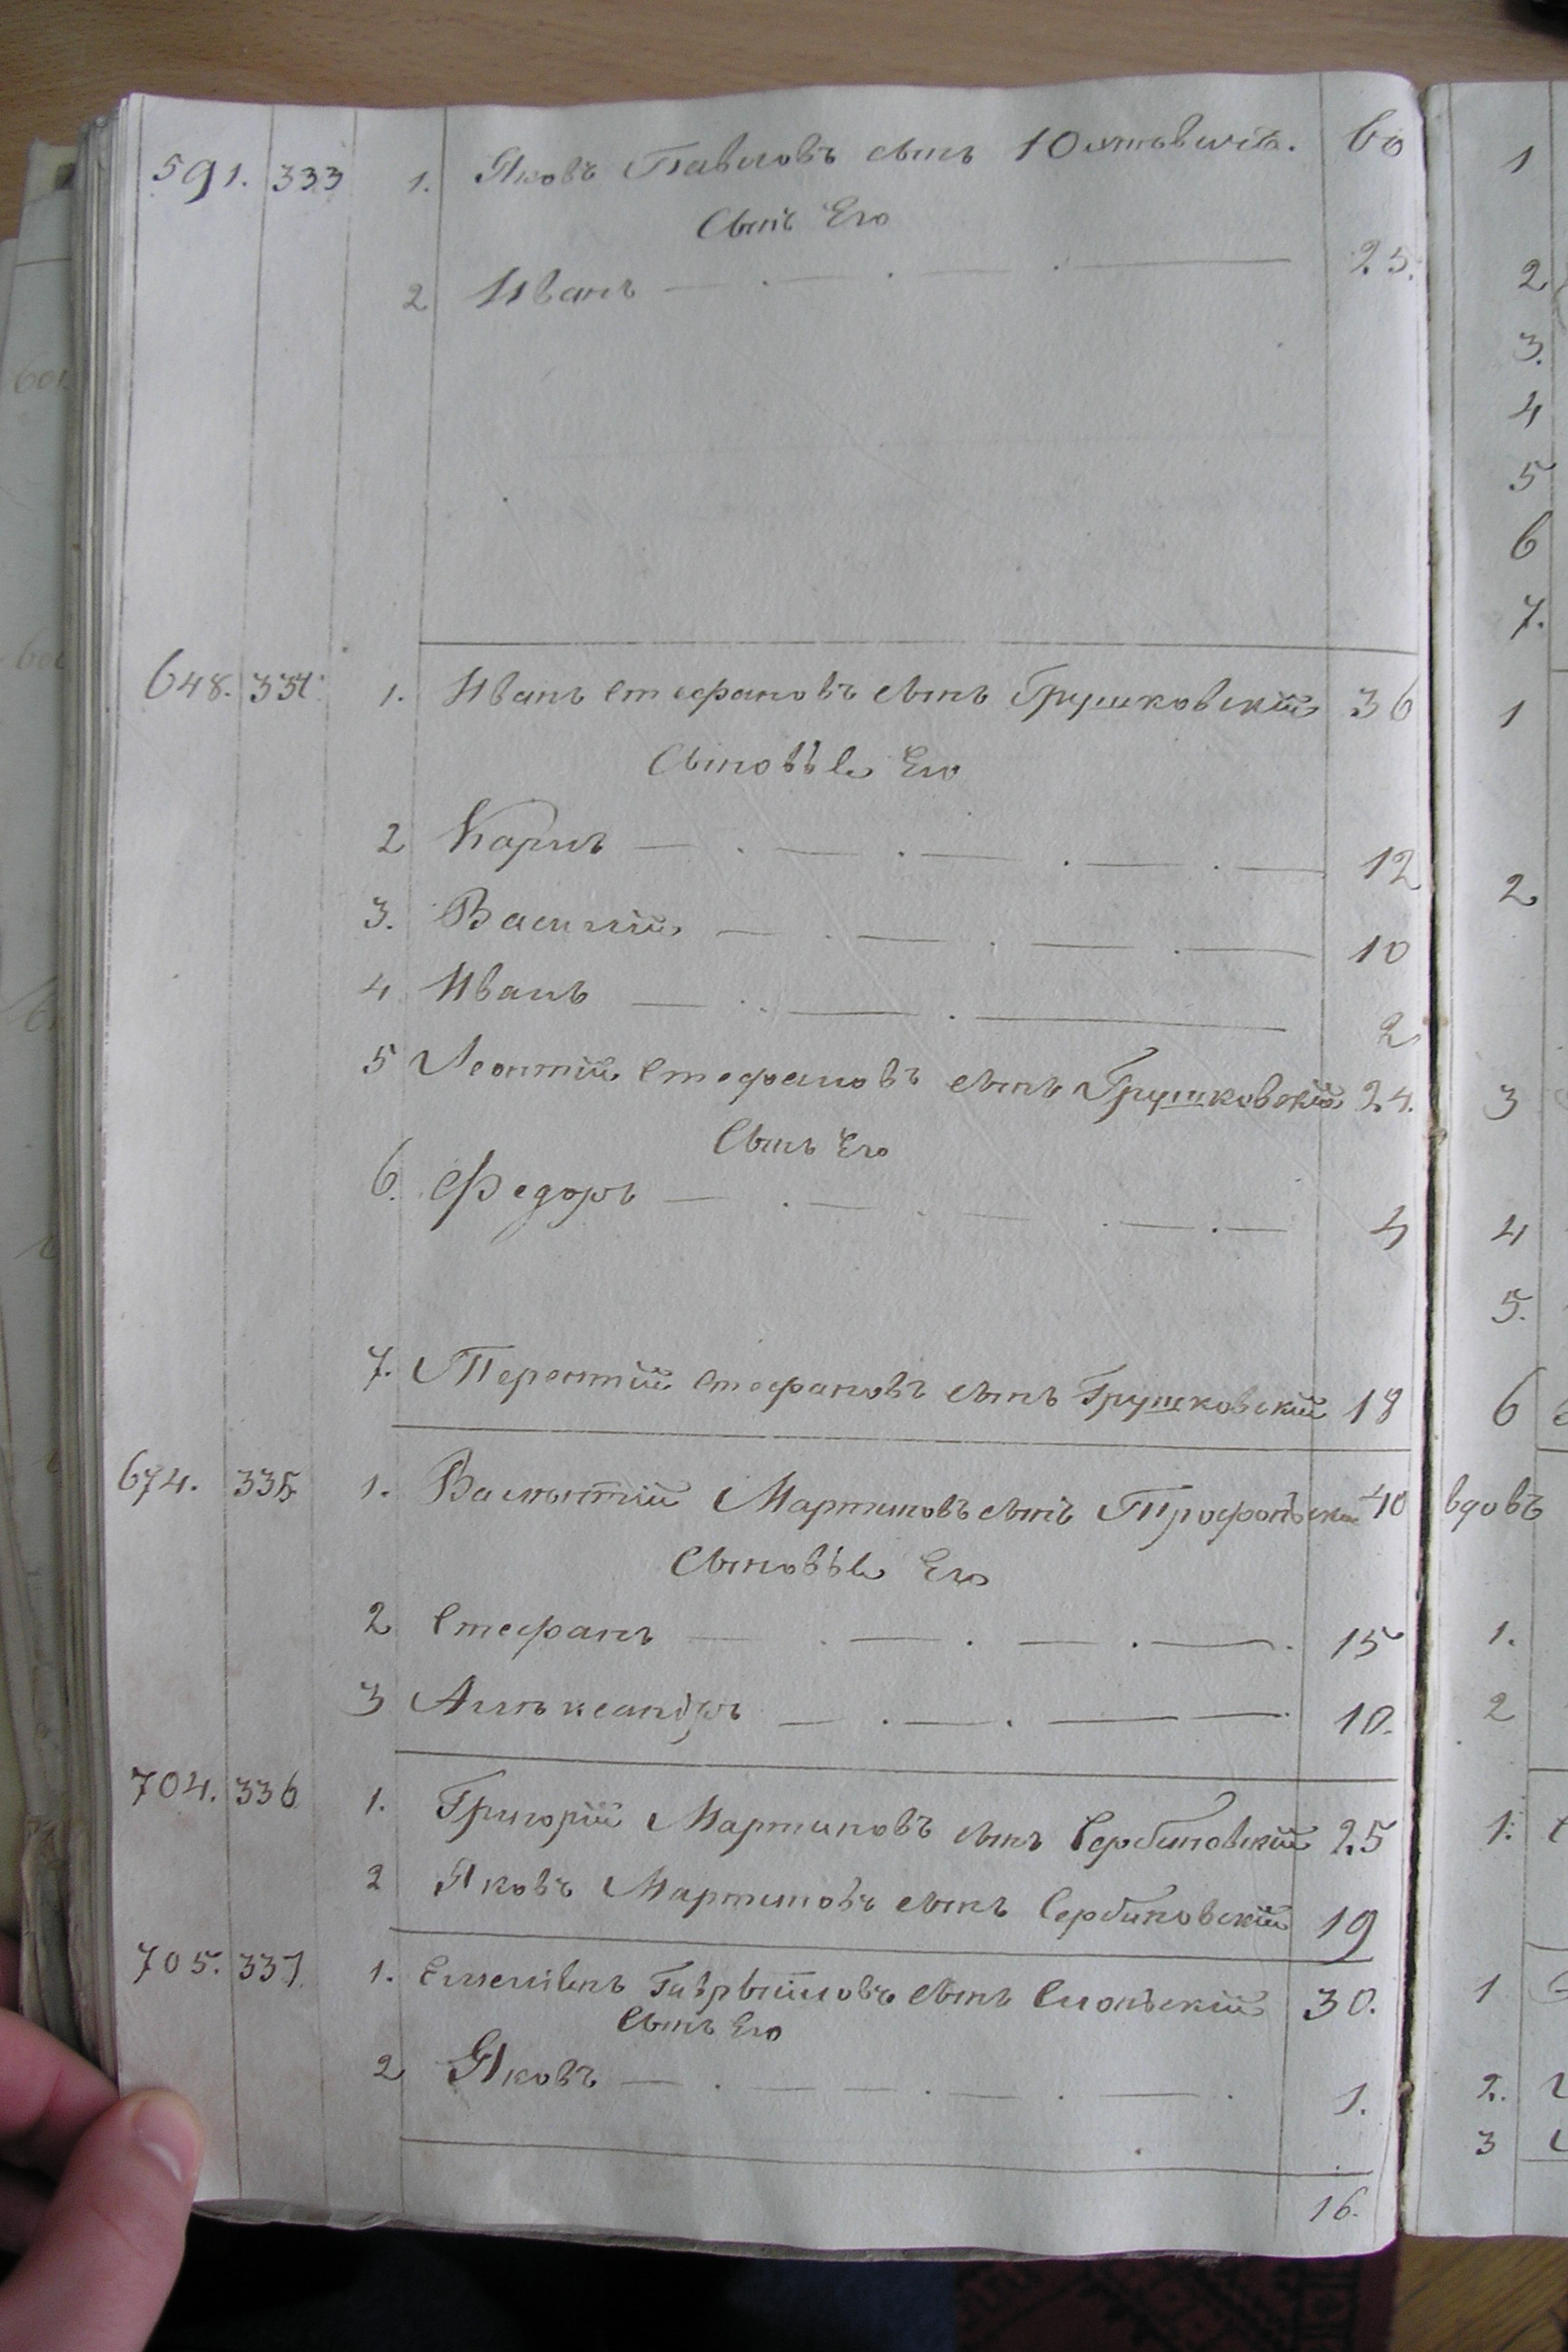 591. 333 1. Яковъ Павловъ сынъ 60
Сынъ Его
2 Иванъ 25.
648. 334. 1. Иванъ Стефановъ сынъ Грушковскій 36
Сыновьѣ Его
2 Карпъ 12
3. Василій 10
4 Иванъ 2
5 Леонтій Стефановъ сынъ Грушковскій 24.
Сынъ Его
6. Федоръ 4
7. Терентій Стефановъ сынъ Грушковскій 18
674. 335 1. Мартиновъ сынъ 40
Сыновьѣ Его
2 Стефанъ 15
3 Алѣксандръ 10.
704. 336 1. Григорій Мартиновъ сынъ Сербиновскій 25
2 Яковъ Мартиновъ сынъ Сербиновскій 19
705. 337. 1. сынъ 30.
Сынъ Его
2 Яковъ 1.
16.
1
2
3.
4
5
6
7.
1
2
3
4
5.
6
вдовъ
1.
2
1.
1
2.
3